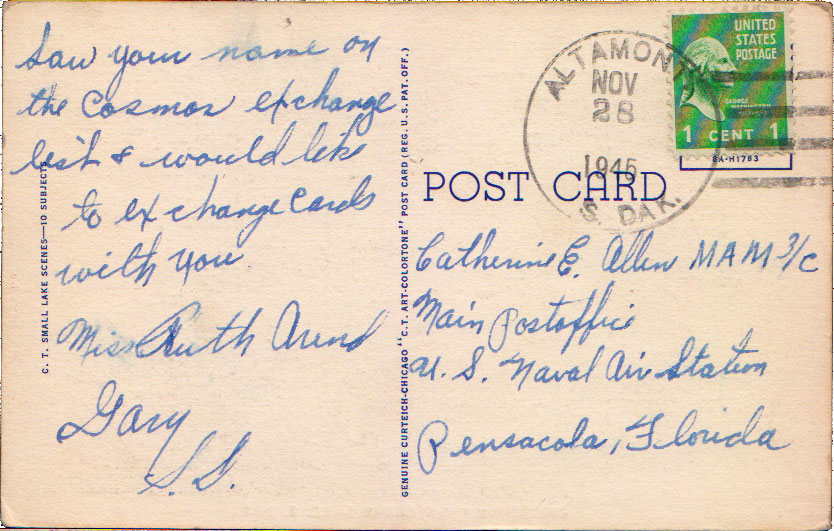 Saw your name on
the Cosmos exchange
list & would like
to exchange cards
with you
Miss Ruth Arend
Gary
S.D.
C. T. SMALL LAKE SCENES—10 SUBJECTS
GENUINE CURTEICH-CHICAGO "C.T. ART-COLORTONE" POST CARD (REG. U.S. PAT. OFF.)
ALTAMONT
NOV
28
1945
S. DAK.
UNITED
STATES
POSTAGE
GEORGE
WASHINGTON
1 CENT 1
8A-H1783
POST CARD
Catherine E. Allen MAM 3/c
Main Postoffice
U. S. Naval Air Station
Pensacola, Florida